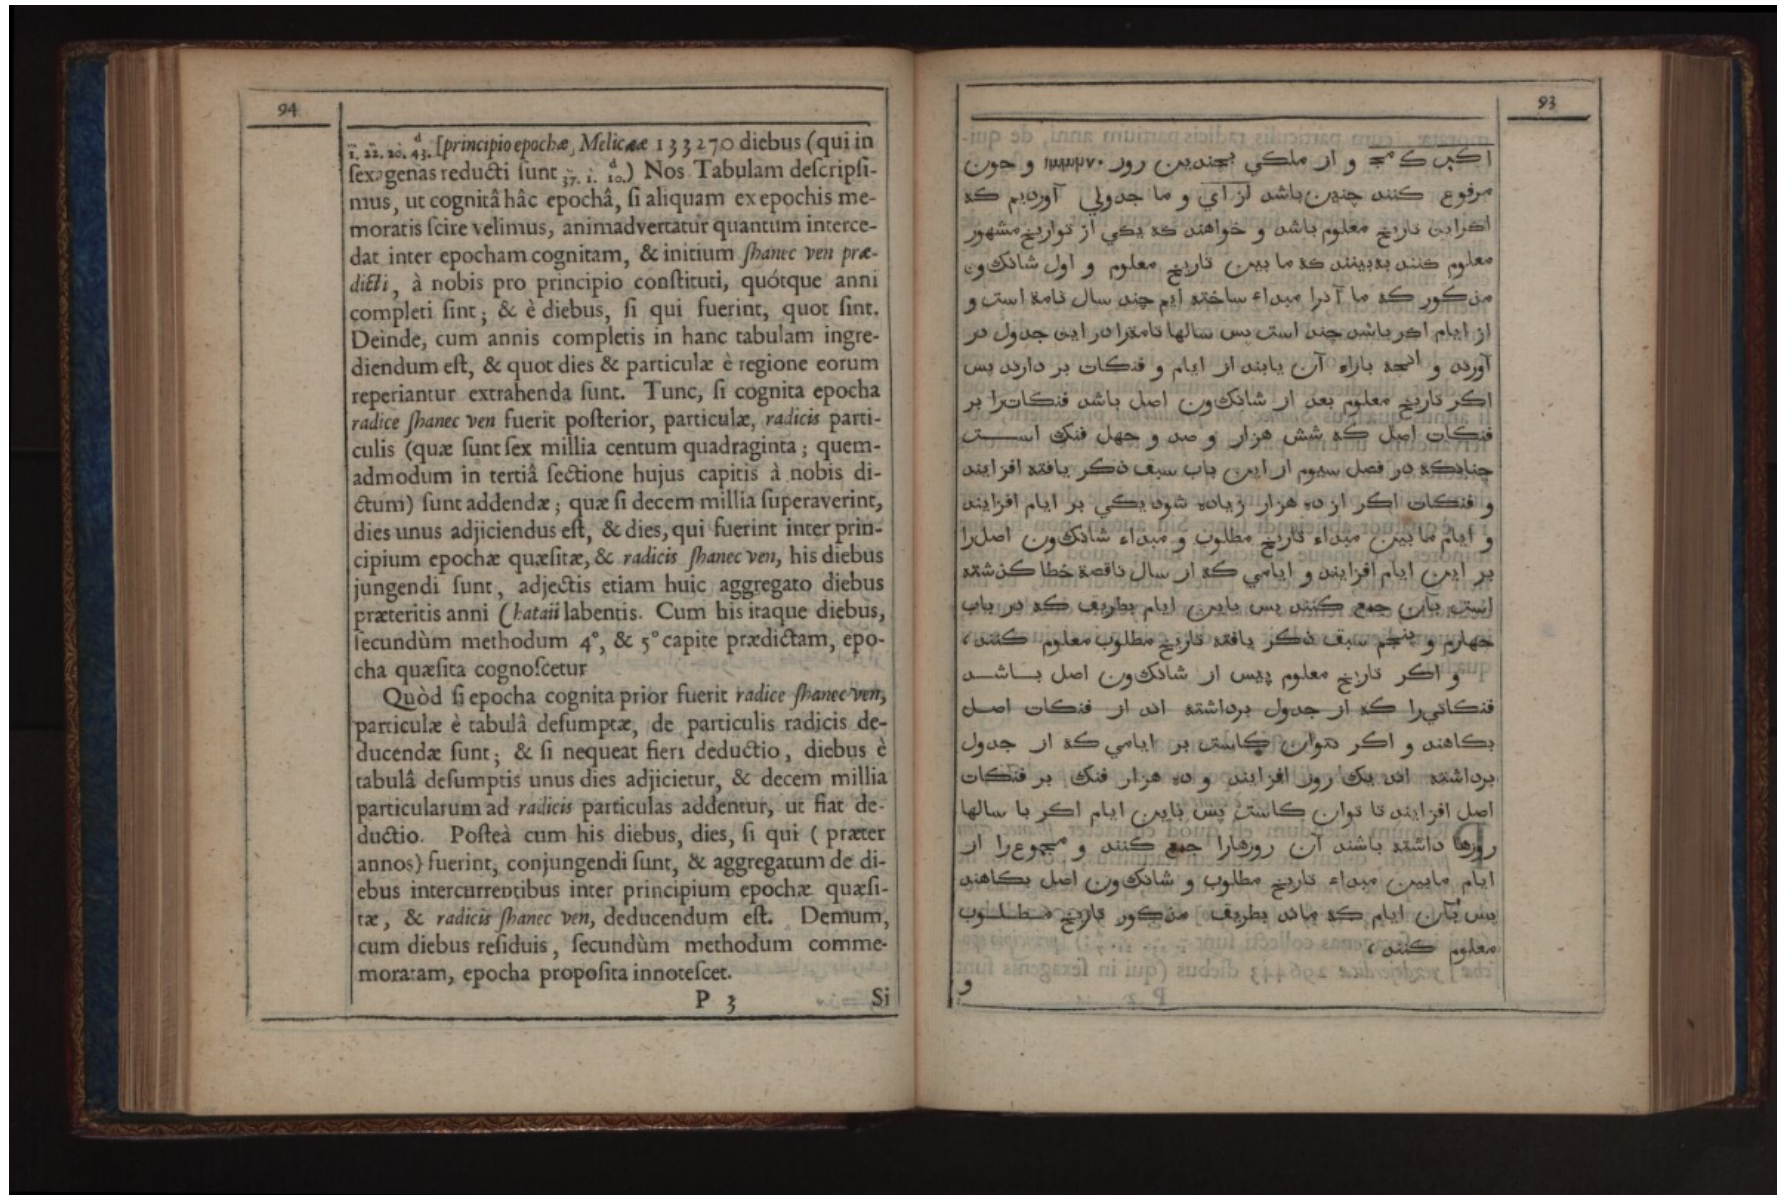 94
1. 22. 20. 43. [principio epochæ, Melicææ 133270 diebus (qui in
sexagenas reducti sunt 37. 1. 10.) Nos Tabulam descripsi-
mus, ut cognitâ hâc epochâ, si aliquam ex epochis me-
moratis scire velimus, animadvertatur quantum interce-
dat inter epocham cognitam, & initium shanec ven præ-
dicti, à nobis pro principio constituti, quótque anni
completi sint; & è diebus, si qui fuerint, quot sint.
Deinde, cum annis completis in hanc tabulam ingre-
diendum est, & quot dies & particulæ è regione eorum
reperiantur extrahenda sunt. Tunc, si cognita epocha
radice shanec ven fuerit posterior, particulæ, radicis parti-
culis (quæ sunt sex millia centum quadraginta; quem-
admodum in tertiâ sectione hujus capitis à nobis di-
ctum) sunt addendæ; quæ si decem millia superaverint,
dies unus adjiciendus est, & dies, qui fuerint inter prin-
cipium epochæ quæsitæ, & radicis shanec ven, his diebus
jungendi sunt, adjectis etiam huic aggregato diebus
præteritis anni Chataii labentis. Cum his itaque diebus,
secundùm methodum 4°, & 5° capite prædictam, epo-
cha quæsita cognoscetur
Quòd si epocha cognita prior fuerit radice shanec ven,
particulæ è tabulâ desumptæ, de particulis radicis de-
ducendæ sunt; & si nequeat fieri deductio, diebus è
tabulâ desumptis unus dies adjicietur, & decem millia
particularum ad radicis particulas addentur, ut fiat de-
ductio. Posteà cum his diebus, dies, si qui (præter
annos) fuerint, conjungendi sunt, & aggregatum de di-
ebus intercurrentibus inter principium epochæ quæsi-
tæ, & radicis shanec ven, deducendum est. Demum,
cum diebus residuis, secundùm methodum comme-
moratam, epocha proposita innotescet.
P 3 Si
93
و از ملكي بچندين روز ۱۳۳۲۷۰ و چون
مرفوع كنند چنين باشد لز اي و ما جدولي آورديم كه
اكر اين تاريخ معلوم باشد و خواهند كه يكي از تواريخ مشهور
معلوم كنند به بينند كه ما بين تاريخ معلوم و اول شانك ون
مذكور كه ما آنرا مبداء ساخته ايم چند سال تامه است و
از ايام اكر باشد چند است پس سالها تامه را در اين جدول در
آورده و انچه بازاء آن يابند از ايام و فنكات بر دارند پس
اكر تاريخ معلوم بعد از شانك ون اصل باشد فنكات را بر
فنكات اصل كه شش هزار و صد و چهل فنك است
چنانكه در فصل سيوم از اين باب سبق ذكر يافته افزايند
و فنكات اكر از ده هزار زياده شود يكي بر ايام افزايند
و ايام ما بين مبداء تاريخ مطلوب و مبداء شانك ون اصل را
بر اين ايام افزايند و ايامي كه از سال ناقصه خطا كذشته
است بآن جمع كنند پس باين ايام بطريق كه در باب
چهارم و پنجم سبق ذكر يافته تاريخ مطلوب معلوم كنند،
و اكر تاريخ معلوم پيس از شانك ون اصل باشد
فنكاتي را كه از جدول برداشته اند از فنكات اصل
بكاهند و اكر نتوان كاست بر ايامي كه از جدول
برداشته اند يك روز افزايند و ده هزار فنك بر فنكات
اصل افزايند تا توان كاست پس باين ايام اكر با سالها
روزها داشته باشند آن روزهارا جمع كنند و مجموع را از
ايام مابين مبداء تاريخ مطلوب و شانك ون اصل بكاهند
پس بآن ايام كه ماند بطريق مذكور تاريخ مطلوب
معلوم كنند،
و